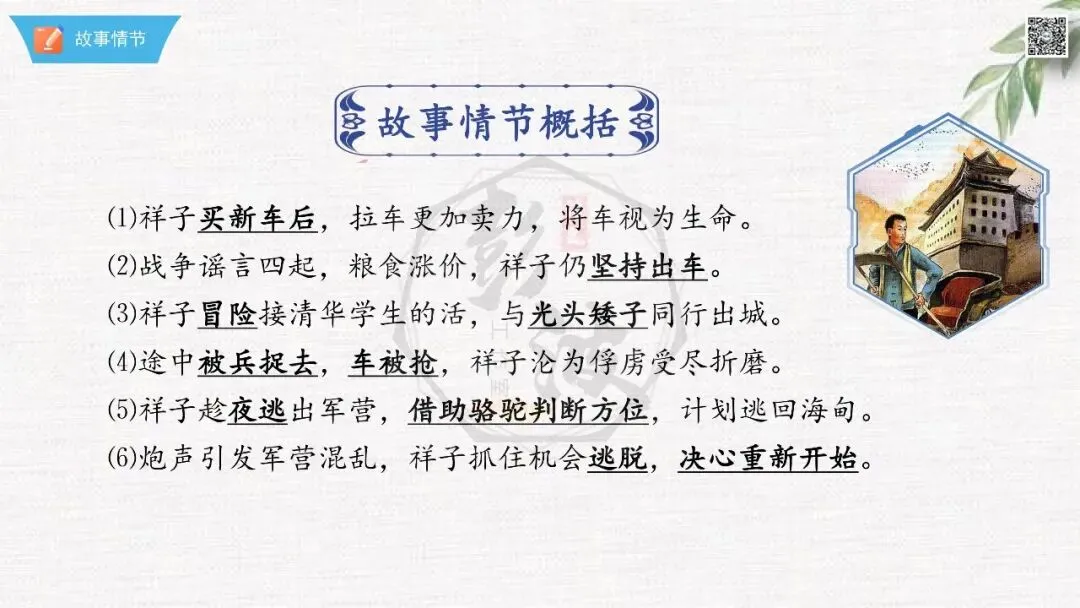 故事情节
故事情节概括
⑴祥子买新车后，拉车更加卖力，将车视为生命。
⑵战争谣言四起，粮食涨价，祥子仍坚持出车。
⑶祥子冒险接清华学生的活，与光头矮子同行出城。
⑷途中被兵捉去，车被抢，祥子沦为俘虏受尽折磨。
⑸祥子趁夜逃出军营，借助骆驼判断方位，计划逃回海甸。
⑹炮声引发军营混乱，祥子抓住机会逃脱，决心重新开始。